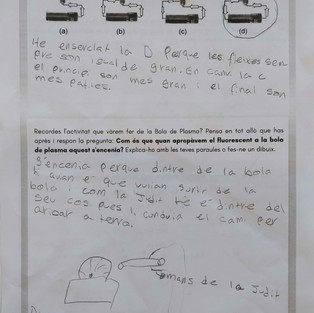 (a) (b) (c) (d)
He enserclat la D perque les fleixes sem
pre son igual de gran. En canvi la c
el princip son mes gran i el final son
mes petites.
Recordes l'activitat que vàrem fer de la Bola de Plasma? Pensa en tot allò que has
après i respon la pregunta: Com és que quan apropàvem el fluorescent a la bola
de plasma aquest s'encenia? Explica-ho amb les teves paraules o fes-ne un dibuix.
S'encenia perque dintre de la bola
hi avien e- que vulian surtir de la
bola i com la Judit té e- dintre del
seu cos pues li conduia el cami per
aribar a terra.
mans de la Judit